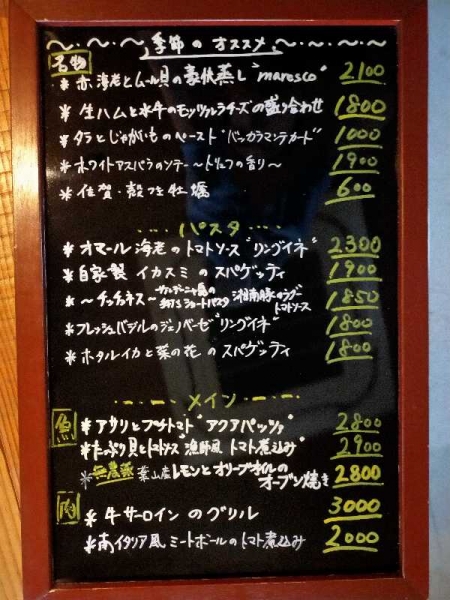 季節のオススメ
名物
* 赤海老とムール貝の豪快蒸し "maresco" 2100
* 生ハムと水牛のモッツァレラチーズの盛り合わせ 1800
* タラとじゃがいものペースト "バッカラマンテカート" 1000
* ホワイトアスパラのソテー 〜トリュフの香り〜 1900
* 佐賀・殻つき牡蠣 600
パスタ
* オマール海老のトマトソース "リングイネ" 2300
* 自家製 イカスミのスパゲッティ 1900
* 〜チェチェネス〜 サルデーニャ島の
ショートパスタ 湘南豚のラグー
トマトソース 1850
* フレッシュバジルのジェノベーゼ "リングイネ" 1800
* ホタルイカと菜の花のスパゲッティ 1800
メイン
魚
* アサリとプチトマト "アクアパッツァ" 2800
* たっぷり貝とトマトソース "漁師風 トマト煮込み" 2900
* 無農薬 葉山産レモンとオリーブオイルの
オーブン焼き 2800
肉
* 牛サーロインのグリル 3000
* 南イタリア風 ミートボールのトマト煮込み 2000